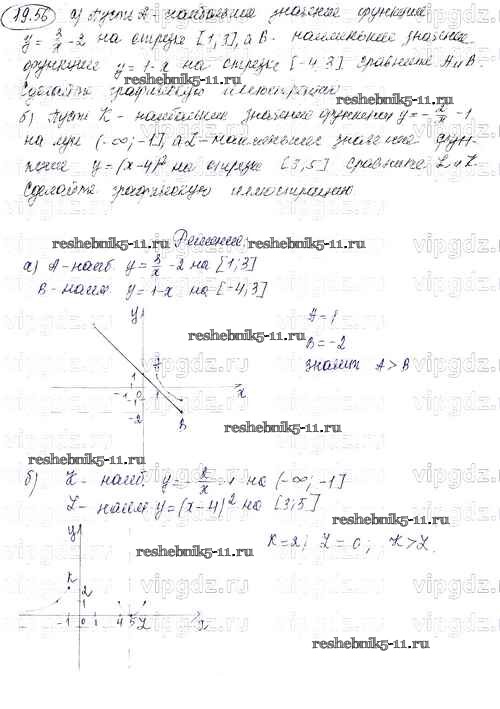 19.56 а) Пусть А - наибольшее значение функции
y = 3/x - 2 на отрезке [1,3], а В - наименьшее значение
функции y = 1-x на отрезке [-4,3] сравните А и В.
Сделайте графическую иллюстрацию
б) Пусть К - наибольшее значение функции y = - 2/x - 1
на луч (-∞; -1], а L - наименьшее значение функ-
y = (x-4)² на отрезке [3,5] сравните
Сделайте графическую иллюстрацию
Решение:
reshebnik5-11.ru
а) А - наиб. y = 3/x - 2 на [1;3]
В - наим y = 1-x на [-4;3]
A = 1
B = -2
значит A > B
y
1
-1 0 1 x
-1
-2
B
б) К - наиб. на (-∞; -1]
L - наим y = (x-4)² на [3;5]
L = 0; K > L.
y
K 2
1
-1 0 1 4 5 x
vipgdz.ru